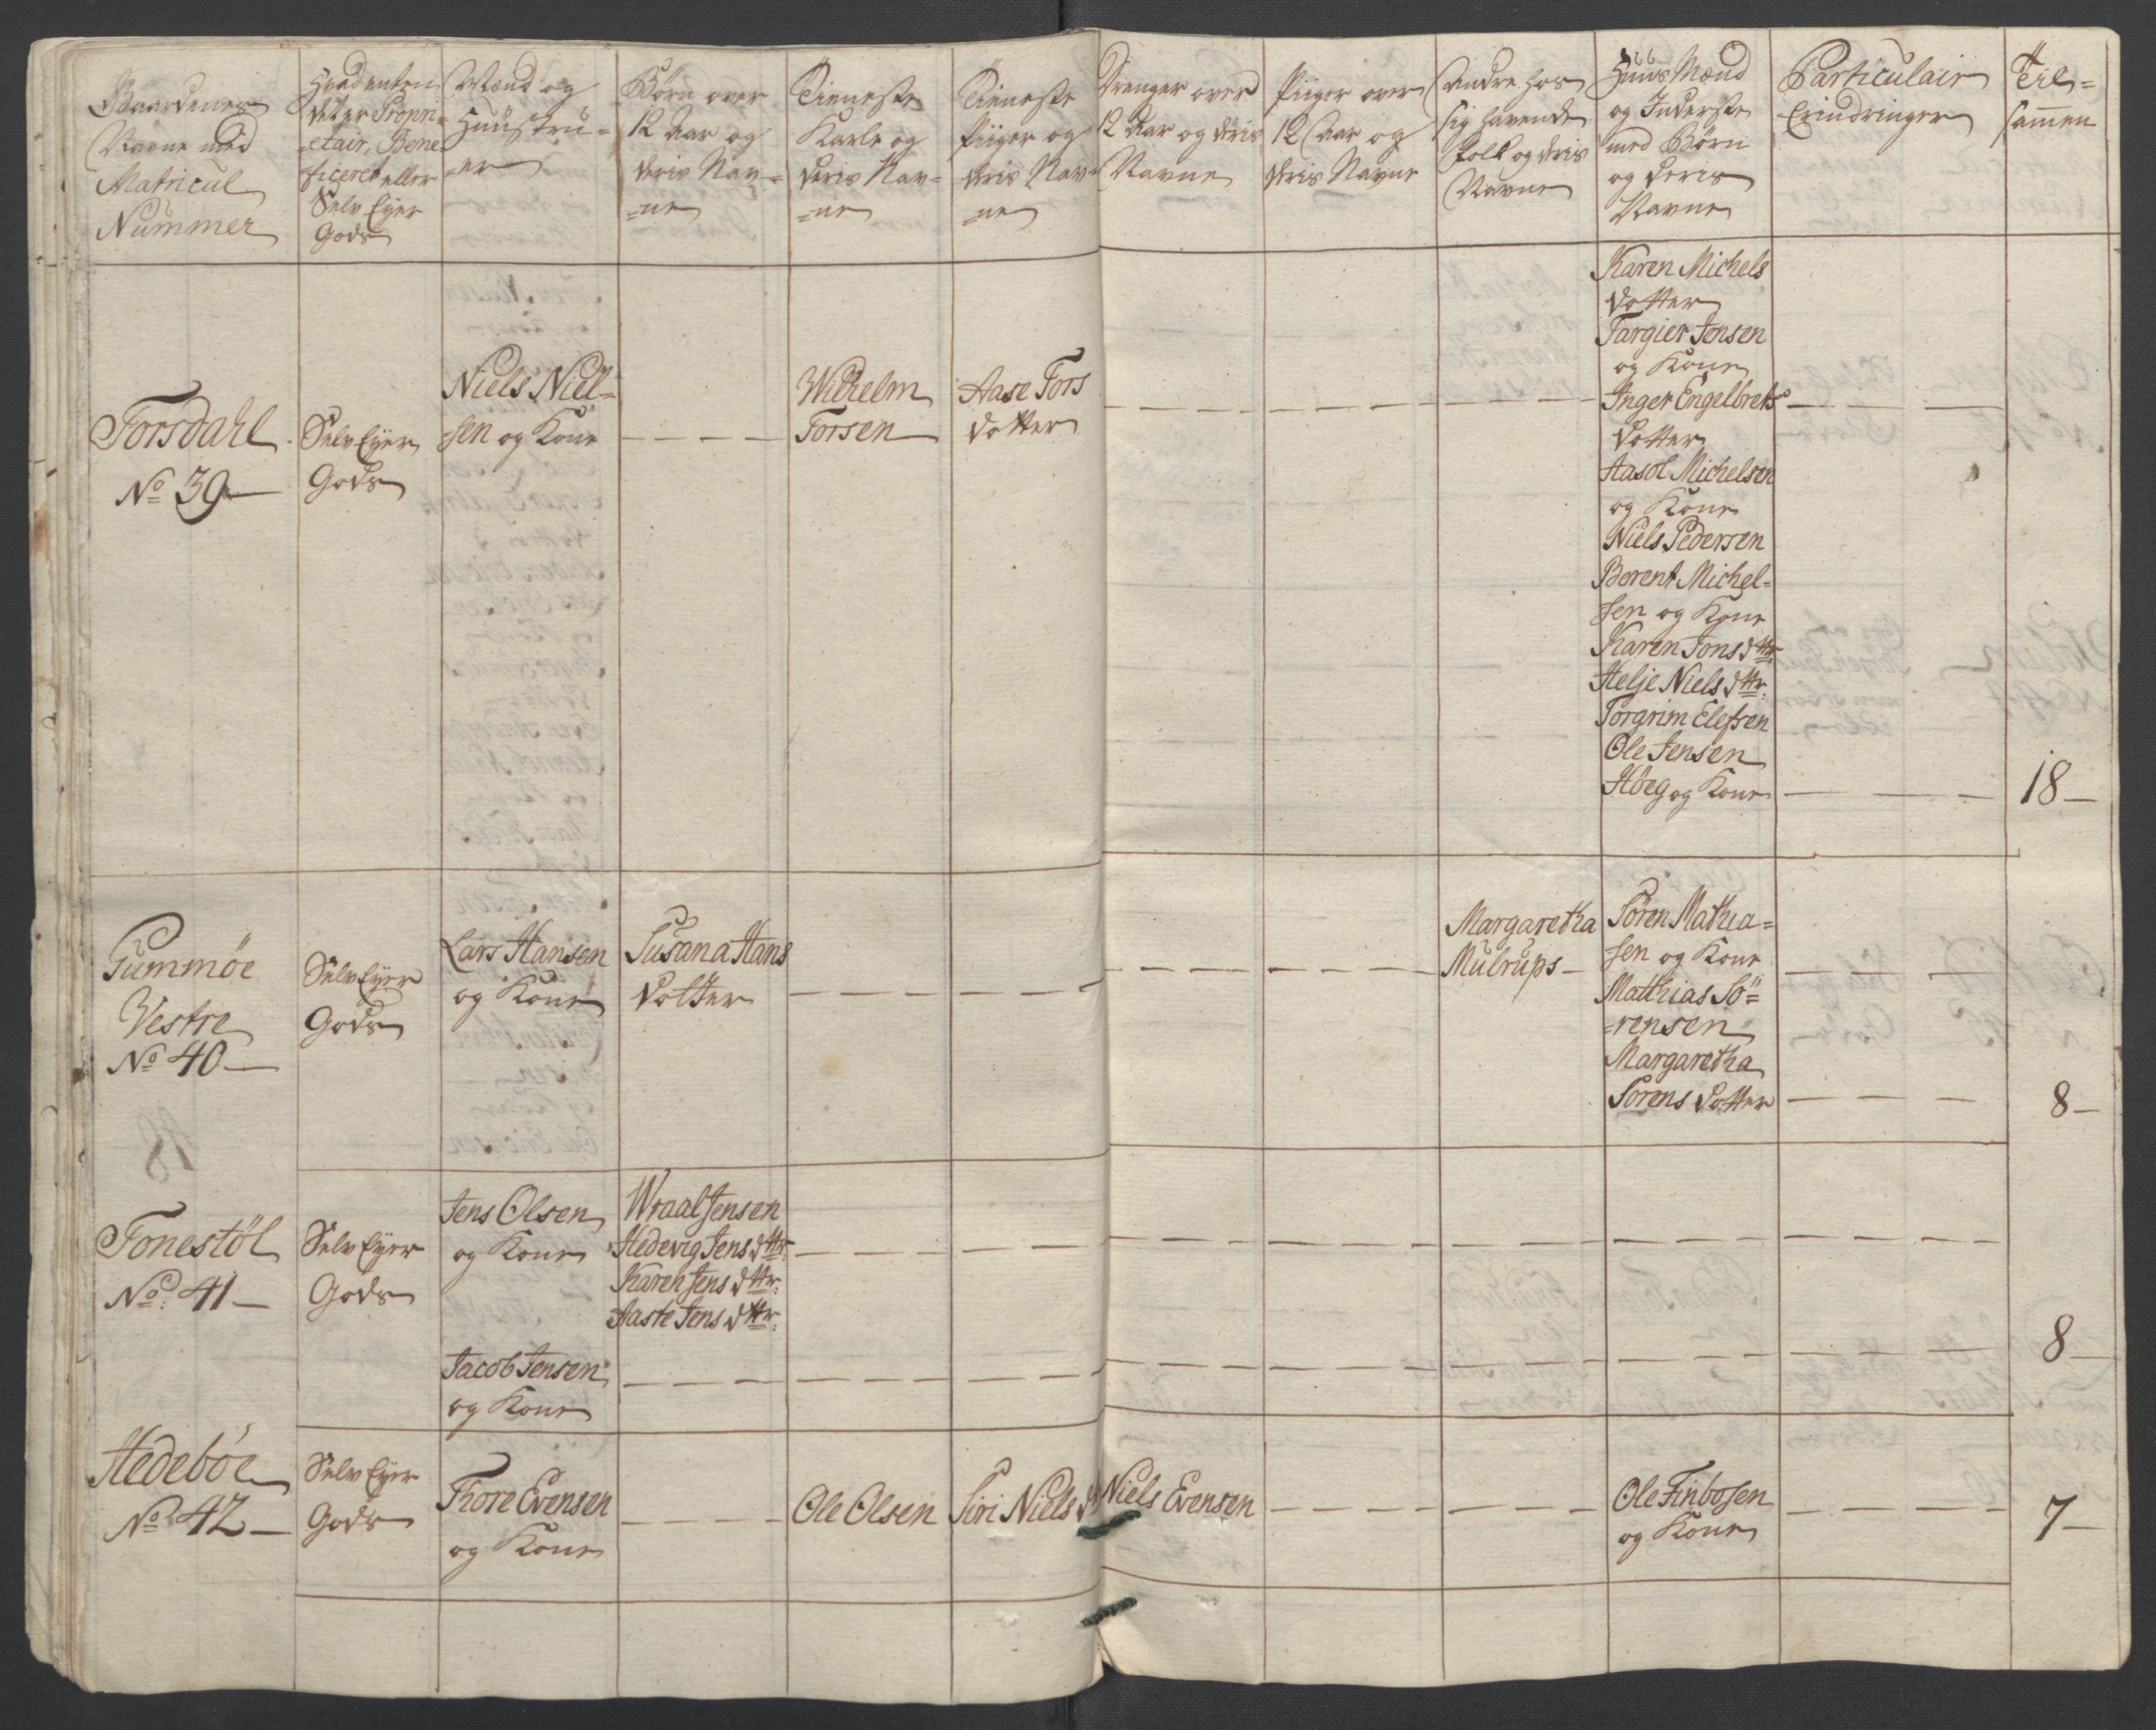 Gaardenes
Navne med
Matricul
Nummer
Hvadenten
det er Propri-
-etair, Bene-
ficeret eller
Selv Eyer
Gods
Mænd og
Huustru-
-er
Börn over
12 Aar og
deris Nav-
-ne
Tieneste
Karle og
deris Nav-
-ne
Tieneste
Piiger og
deris Nav-
-ne
Drenger over
12 Aar og deris
Navne
Piiger over
12 Aar og
deris Navne
Andre hos
sig havende
folk og deris
Navne
Huus Mænd
og Inderste
med Börn
og deris
Navne
Particulair
Erindringer
Til-
sammen
Torsdahl
No 39
Selv Eyer
Gods
Niels Niel-
-sen og Kone
Wilhelm
Torsen
Aase Tors
dotter
Karen Michels
dotter
Targier Jensen
og Kone
Inger Engelbrets
dotter
Aasol Michelsen
og Kone
Niels Pedersen
Berent Michel-
sen og Kone
Karen Jons dttr
Helje Niels dttr:
Torgrim Elefsen
Ole Jensen
Höeg og Kone
18
Gummöe
Vestre
No 40
Selv Eyer
Gods
Lars Hansen
og Kone
Susana Hans
dotter
Margaretha
Mulrups
Sören Mathia-
sen og Kone
Matthias Sö-
-rensen
Margaretha
Sörens dotter
8
Tonestöl
No: 41
Selv Eyer
Gods
Jens Olsen
og Kone
Wraal Jensen
Hedevig Jens dttr:
Karen Jens dttr:
Aaste Jens dttr:
Jacob Jensen
og Kone
8
Hedeböe
No 42
Selv Eyer
Gods
Thore Evensen
og Kone
Ole Olsen
Siri Niels d
Niels Evensen
Ole Finbosen
og Kone
7